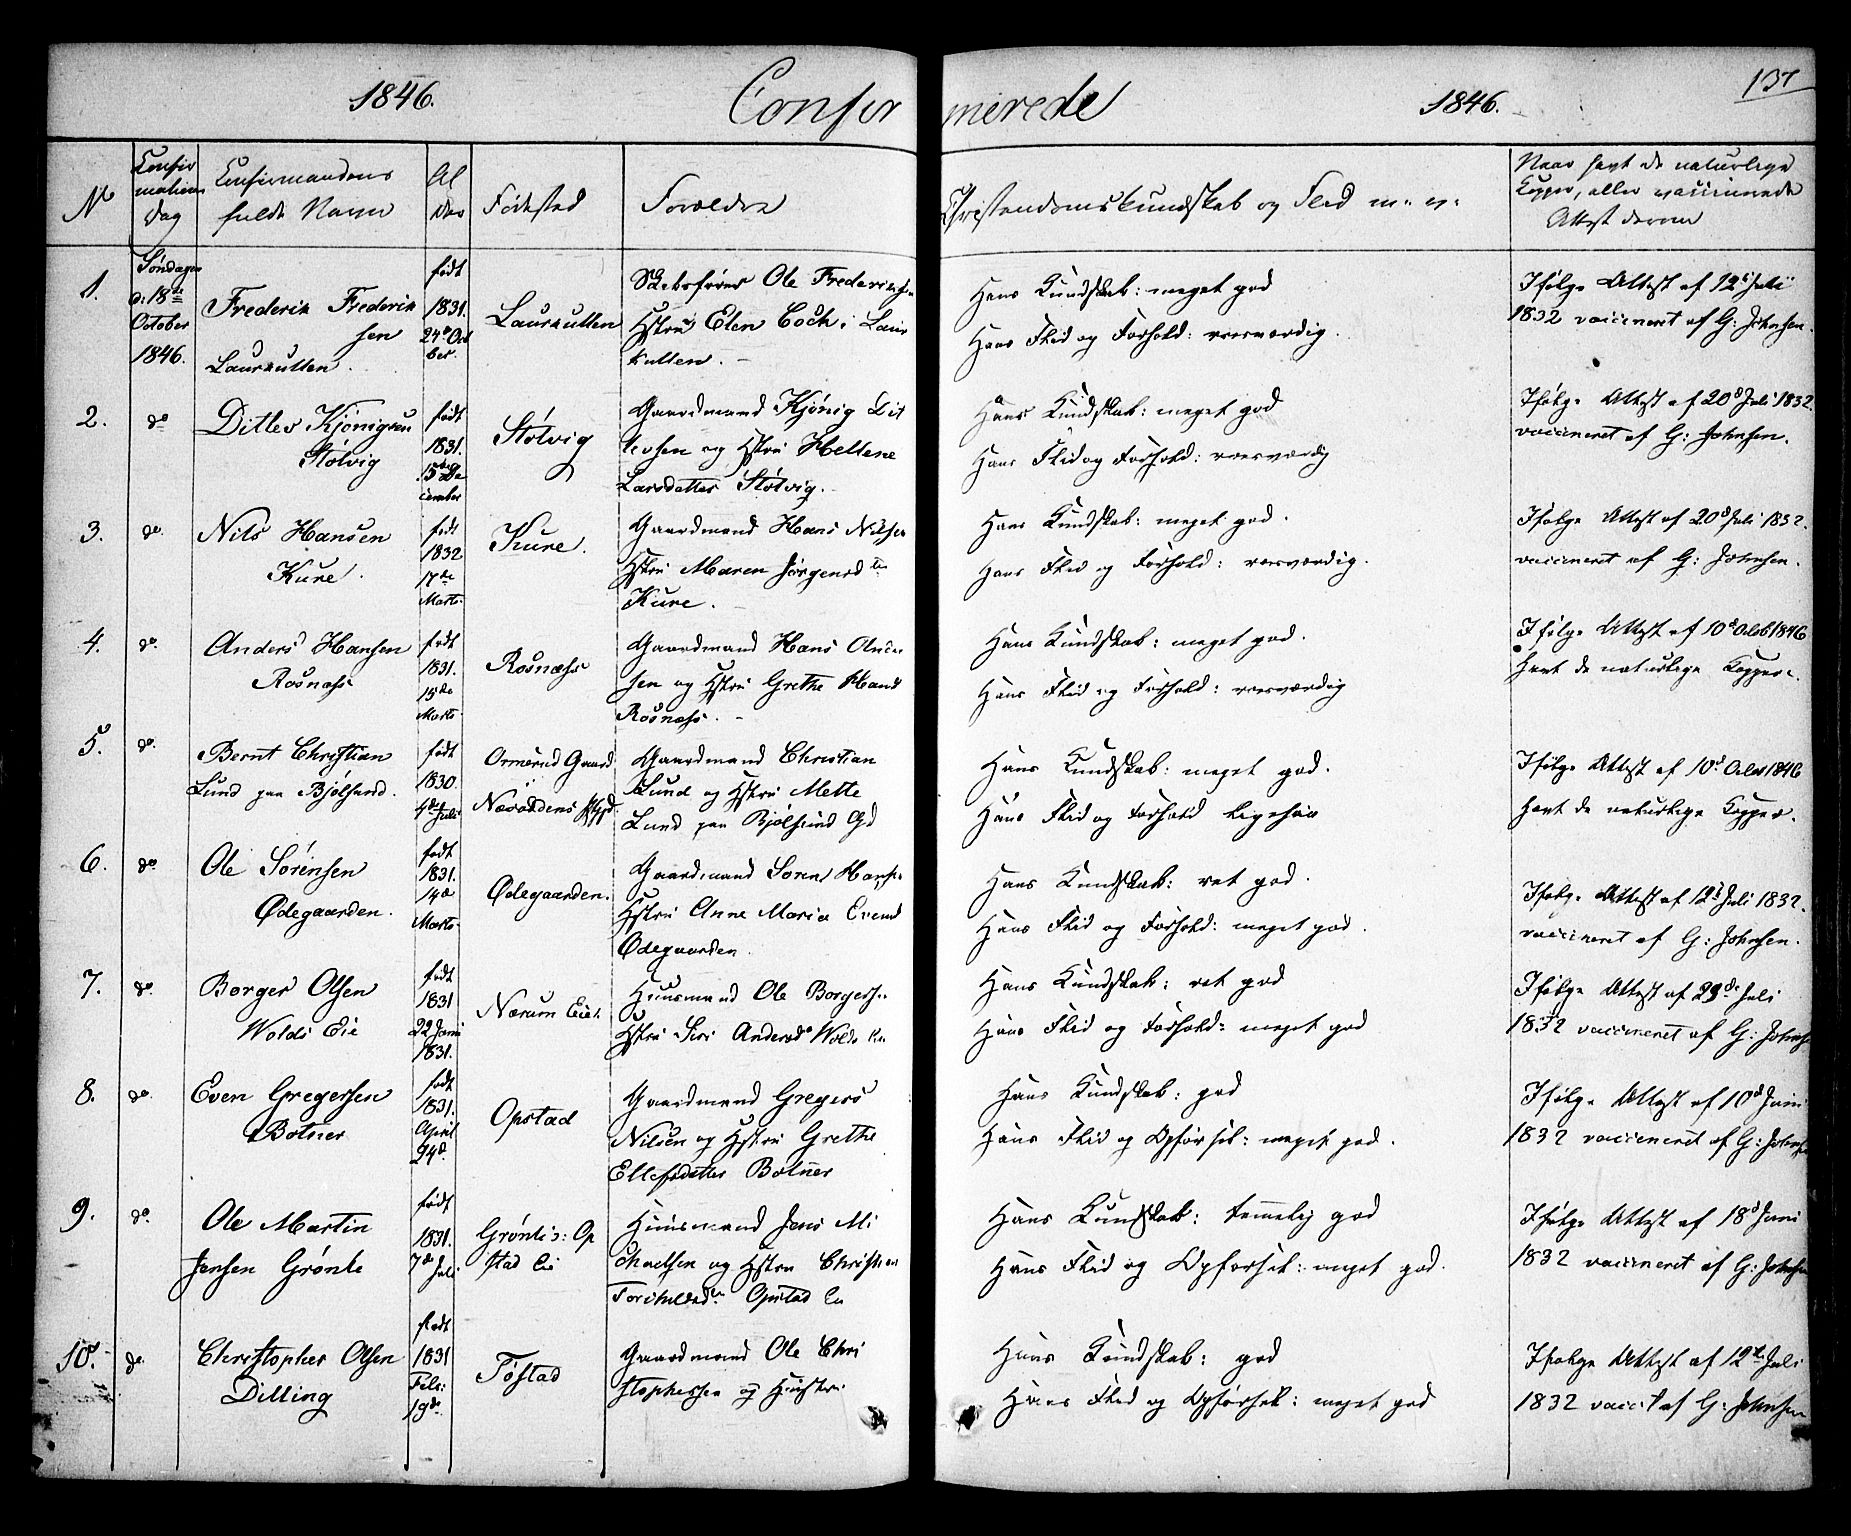 1846. Confirmerede 1846. 137
No Confirmations Dag Confirmandens fulde Navn Alder Fødested Forældre Christendomskundskab og Flid m. v. Naar havt de naturlige Kopper, eller vaccinerede Attest derom
1. Søndagen d: 18de October 1846. Frederik Frederiksen Laurkullen. født 1831. 24de October. Laurkullen Ole Frederiksen Hstru Elen Coch i Laurkullen.
Hans Kundskab: meget god
Hans Flid og Forhold: roesværdig.
Ifølge Attest af 12te Juli
1832 vaccineret af G: Johnsen.
2. do Ditlev Kjønigsen Støtvig født 1831. 15de December Støtvig Gaardmand Kjønig Ditlevsen og Hstru Hellene Larsdatter Støtvig.
Hans Kundskab: meget god
Hans Flid og Forhold: roesværdig
Ifølge Attest af 20de Juli 1832.
vaccineret af G: Johnsen.
3. do. Nils Hansen Kure. født 1832 17de Marts. Kure. Gaardmand Hans Nilsen Hstru Maren Jørgensdtr Kure.
Hans Kundskab: meget god.
Hans Flid og Forhold: roesværdig.
Ifølge Attest af 20de Juli 1832.
vaccineret af G: Johnsen.
4. do. Anders Hansen Rosnæss født 1831. 15de Marts. Rosnæss Gaardmand Hans Andersen og Hstru Grethe Hansd Rosnæss.
Hans Kundskab: meget god.
Hans Flid og Forhold: roesværdig
Ifølge Attest af 10de Octob 1846
havt de naturlige Kopper.
5. do. Bernt Christian Lund paa Bjølsund. født 1830. 4de Juli Ormerud Gaard Gaardmand Christian Lund og Hstru Mette Lund paa Bjølsund Gd
Hans Kundskab: meget god.
Hans Flid og Forhold ligesaa
Ifølge Attest af 10de Octob 1846
havt de naturlige Kopper.
6. do. Ole Sørensen Ødegaarden. født 1831. 14de Marts. Ødegaarden. Gaardmand Søren Hansen Hstru Anne Maria Evensd Ødegaarden.
Hans Kundskab: ret god.
Hans Flid og Forhold: meget god.
Ifølge Attest af 12te Juli 1832.
vaccineret af G: Johnsen.
7. do. Borger Olsen Wolds Eie født 1831 22 Juni 1831. Nærum Eie. Huusmand Ole Borgersen Hstru Siri Andersd Wolds Eie
Hans Kundskab: ret god
Hans Flid og Forhold: meget god
Ifølge Attest af 29de Juli
1832 vaccineret af G: Johnsen
8. do. Even Gregersen Botner født 1831. April 24de. Opstad Gaardmand Gregers Nilsen og Hstru Grethe Ellefsdatter Botner
Hans Kundskab: god
Hans Flid og Opførsel: meget god.
Ifølge Attest af 10de Juni
1832 vaccineret af G: Johnsen
9. do. Ole Martin Jensen Grønli født 1831. 7de Juli Grønli i: Opstad Eie Huusmand Jens Michaelsen og Hstru Opstad Eie
Hans Kundskab: temmelig god
Hans Flid og Opførsel: meget god.
Ifølge Attest af 18de Juni
1832 vaccineret af G: Johnsen
10. do. Christopher Olsen Dilling født 1831 Feb: 19de. Tøstad Gaardmand Ole Christophersen og Hustru
Hans Kundskab: god
Hans Flid og Opførsel: meget god
Ifølge Attest af 12te Juli
1832 vaccit af G: Johnsen